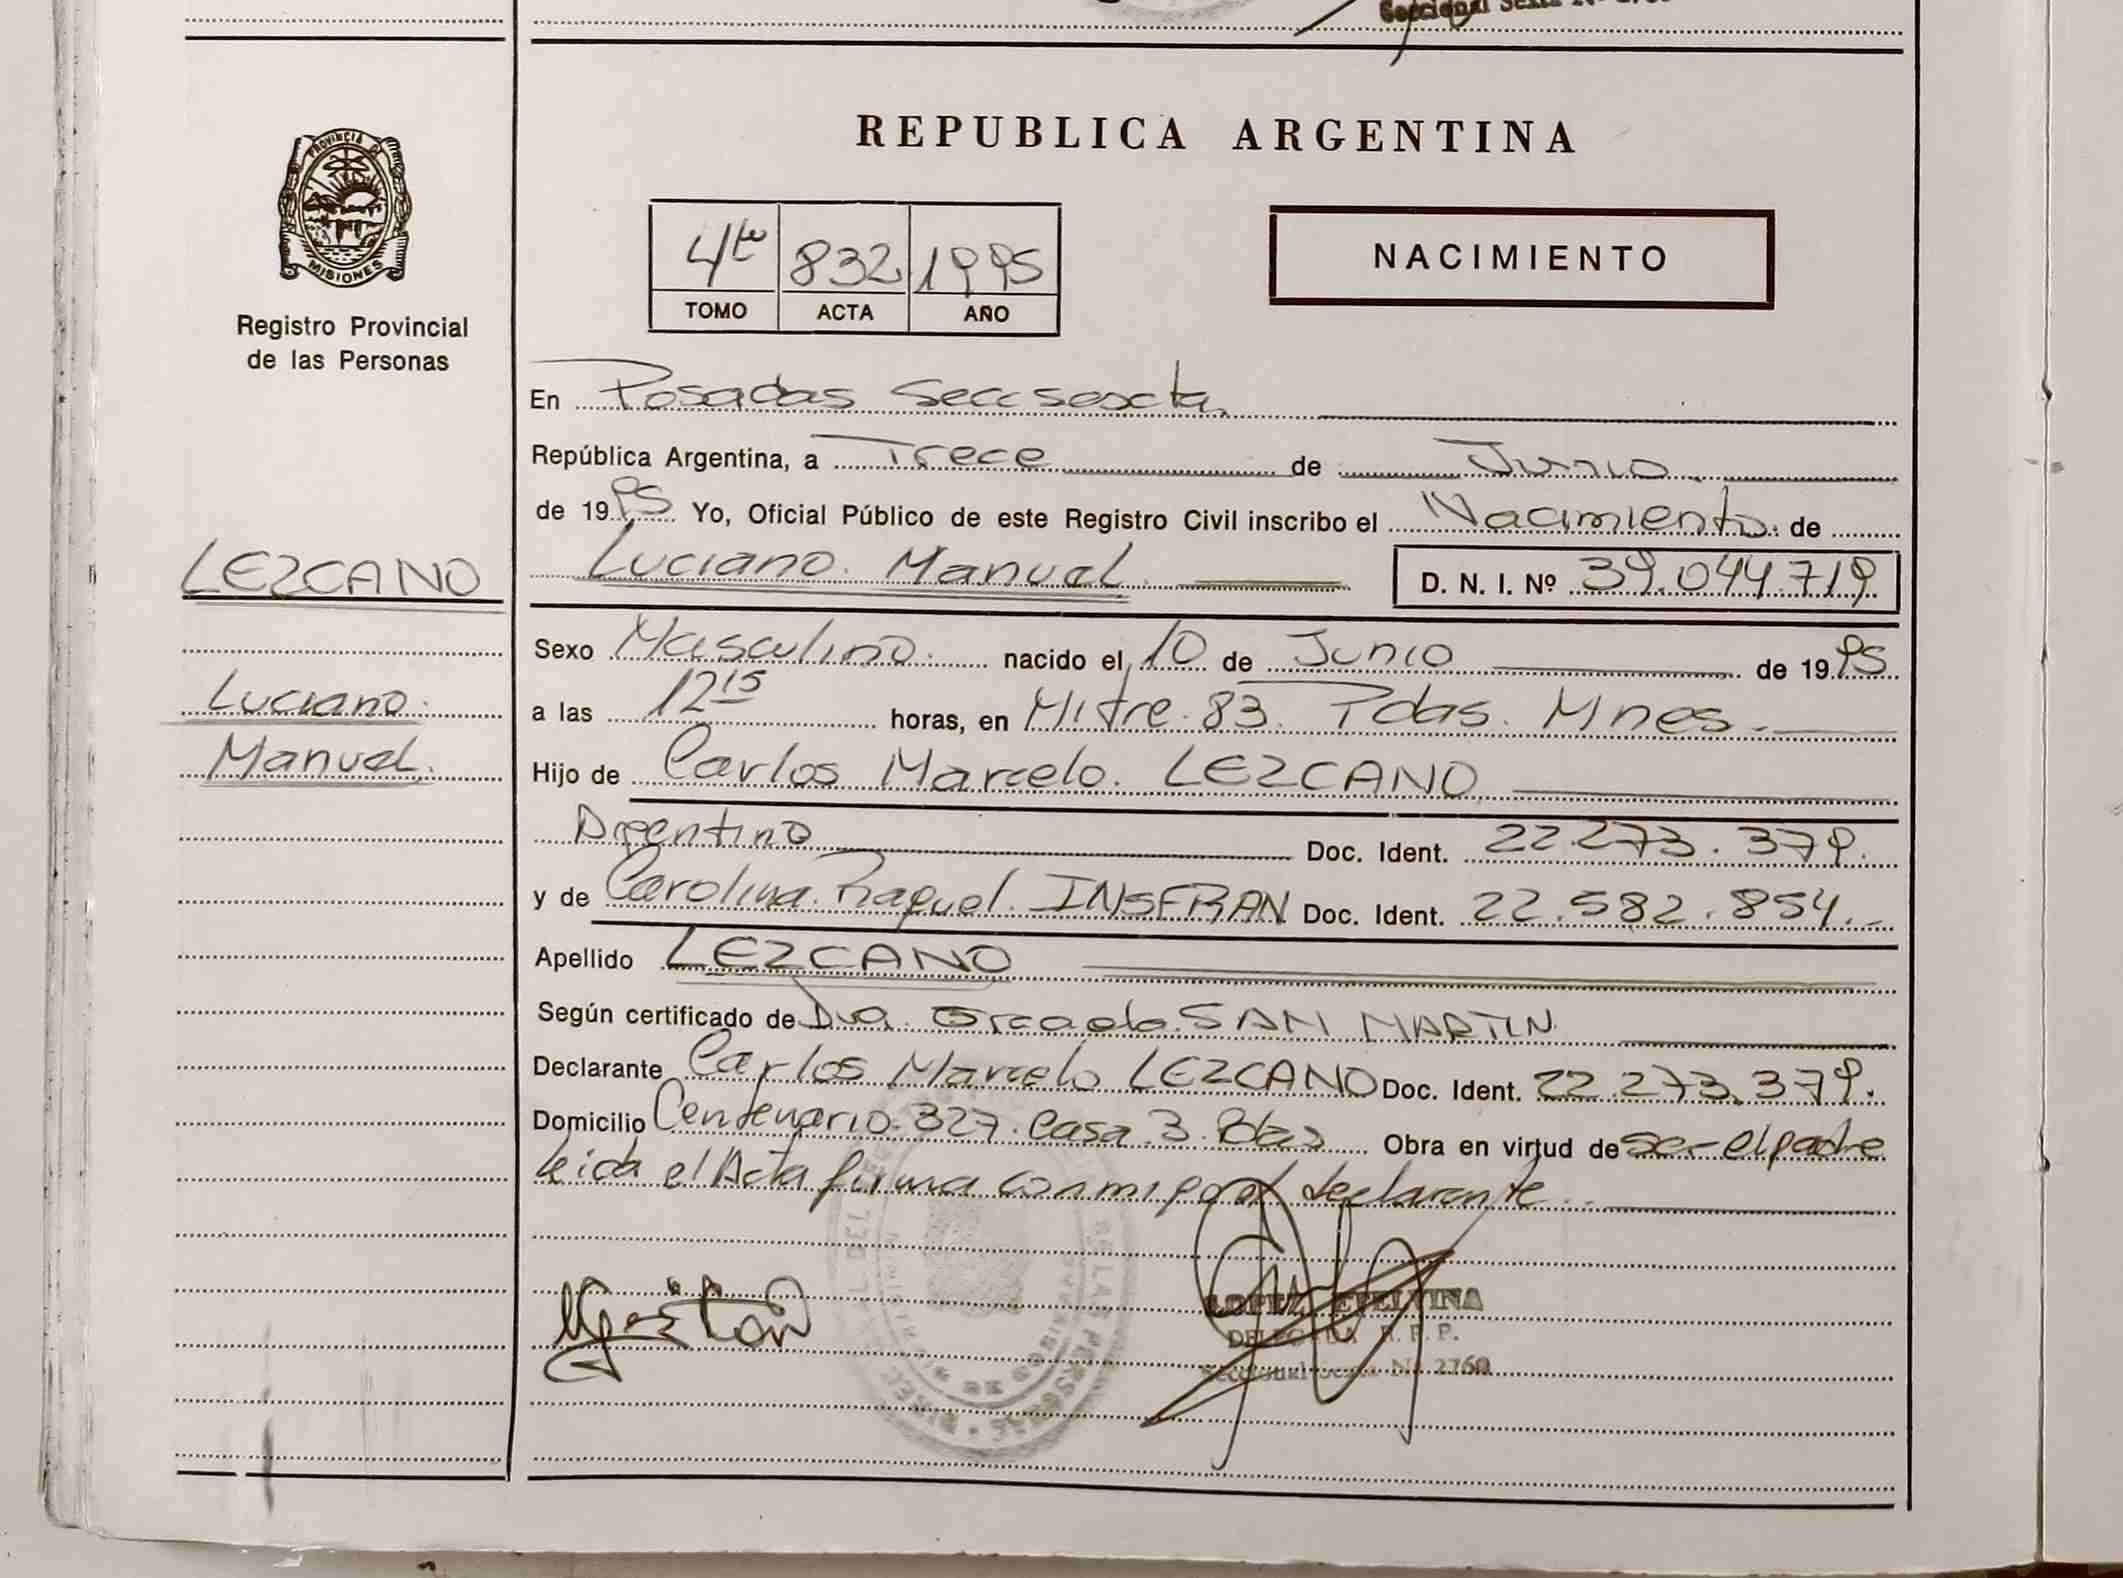 Seccional Sexta Nº
PROVINCIA DE
MISIONES
Registro Provincial
de las Personas
REPUBLICA ARGENTINA
4to 832 1995
TOMO ACTA AÑO
NACIMIENTO
En Posadas Secc sexta
República Argentina, a Trece de Junio
de 1995 Yo, Oficial Público de este Registro Civil inscribo el Nacimiento de
LEZCANO
Luciano Manuel D. N. I. Nº 39.044.719
Sexo Masculino nacido el 10 de Junio de 1995
Luciano
a las 12 15 horas, en Mitre 83. Pdas. Mnes.
Manuel
Hijo de Carlos Marcelo LEZCANO
Argentino Doc. Ident. 22.273.379.
y de Carolina Raquel INSFRAN Doc. Ident. 22.582.854.
Apellido LEZCANO
Según certificado de Dra. SAN MARTIN
Declarante Carlos Marcelo LEZCANO Doc. Ident. 22.273.379.
Domicilio Centenario 327 Casa 3 Obra en virtud de ser el padre
leida el Acta firma conmigo el declarante
LOPEZ ETELVINA
DELEGADA R. P. P.
Seccional Sexta Nº 2760